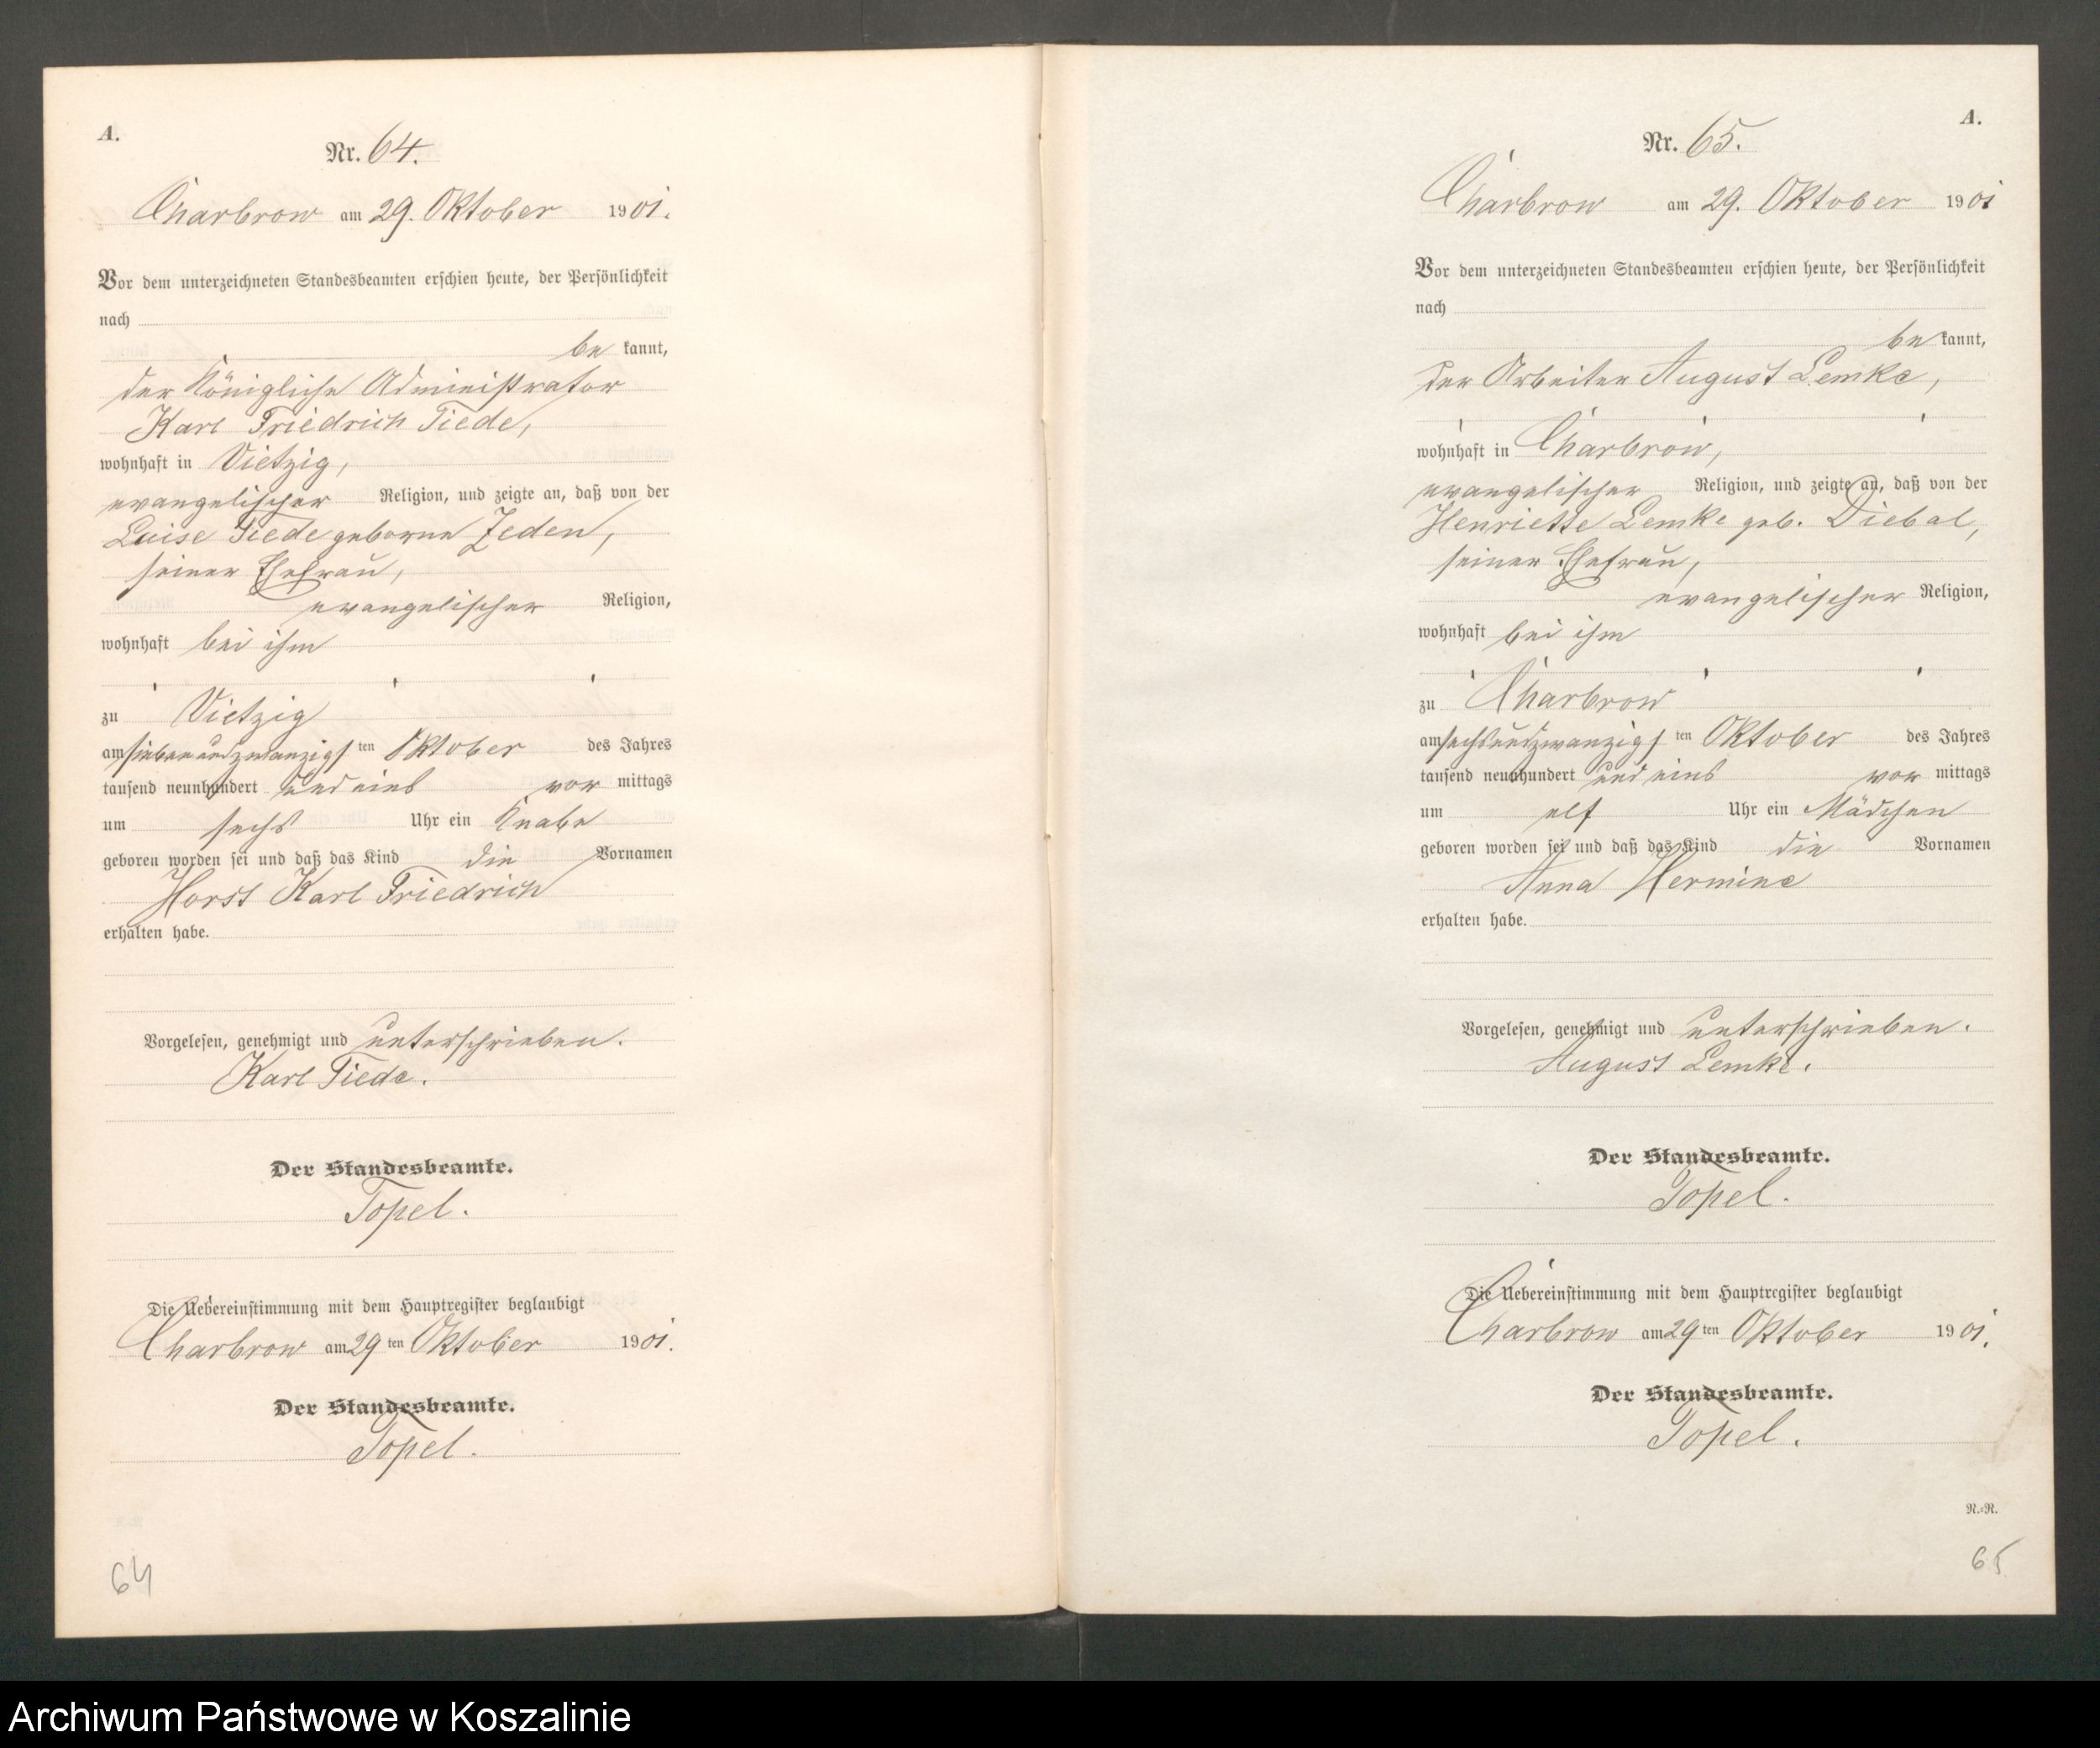 A.
Nr. 64.
Charbrow am 29. Oktober 1901.
Vor dem unterzeichneten Standesbeamten erschien heute, der Persönlichkeit
nach
be kannt,
der Königliche Administrator
Karl Friedrich Tiede,
wohnhaft in Vietzig,
evangelischer Religion, und zeigte an, daß von der
Luise Tiede geborne Zeden,
seiner Ehefrau,
evangelischer Religion,
wohnhaft bei ihm
zu Vietzig
am siebenundzwanzigsten Oktober des Jahres
tausend neunhundert und eins vor mittags
um sechs Uhr ein Knabe
geboren worden sei und daß das Kind die Vornamen
Horst Karl Friedrich
erhalten habe.
Vorgelesen, genehmigt und unterschrieben.
Karl Tiede.
Der Standesbeamte.
Topel.
Die Uebereinstimmung mit dem Hauptregister beglaubigt
Charbrow am 29 ten Oktober 1901.
Der Standesbeamte.
Topel.
64
A.
Nr. 65.
Charbrow am 29. Oktober 1901
Vor dem unterzeichneten Standesbeamten erschien heute, der Persönlichkeit
nach
be kannt,
der Arbeiter August Lemke,
wohnhaft in Charbrow,
evangelischer Religion, und zeigte an, daß von der
Henriette Lemke geb. Diebal,
seiner Ehefrau,
evangelischer Religion,
wohnhaft bei ihm
zu Charbrow
am sechsundzwanzigsten Oktober des Jahres
tausend neunhundert und eins vor mittags
um elf Uhr ein Mädchen
geboren worden sei und daß das Kind die Vornamen
Anna Hermine
erhalten habe.
Vorgelesen, genehmigt und unterschrieben.
August Lemke.
Der Standesbeamte.
Topel.
Die Uebereinstimmung mit dem Hauptregister beglaubigt
Charbrow am 29 ten Oktober 1901.
Der Standesbeamte.
Topel.
N.-R.
65
Archiwum Państwowe w Koszalinie